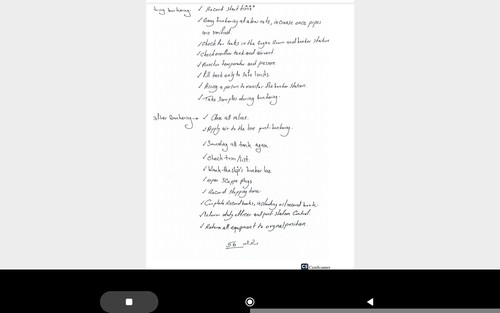 ✓ Record start time
✓ Bring bunkering at slow rate, increase once pipes
are verified.
✓ check for leaks in the engine room and bunker station
✓ check overflow tank and air vent.
✓ Monitor temperature and pressure
✓ Fill tank only to safe limits
✓ Assign a person to monitor the bunker station.
✓ Take samples during bunkering.
After Bunkering → ✓ Close all valves.
✓ Apply air to the line post-bunkering.
✓ Sounding all tank again.
✓ check trim/list.
✓ bunker line
✓ open scupper plugs
✓ Record stopping time
✓ Complete Record books, including oil record book
✓ Inform duty officer and port station control.
✓ Return all equipment to original position.
CS CamScanner